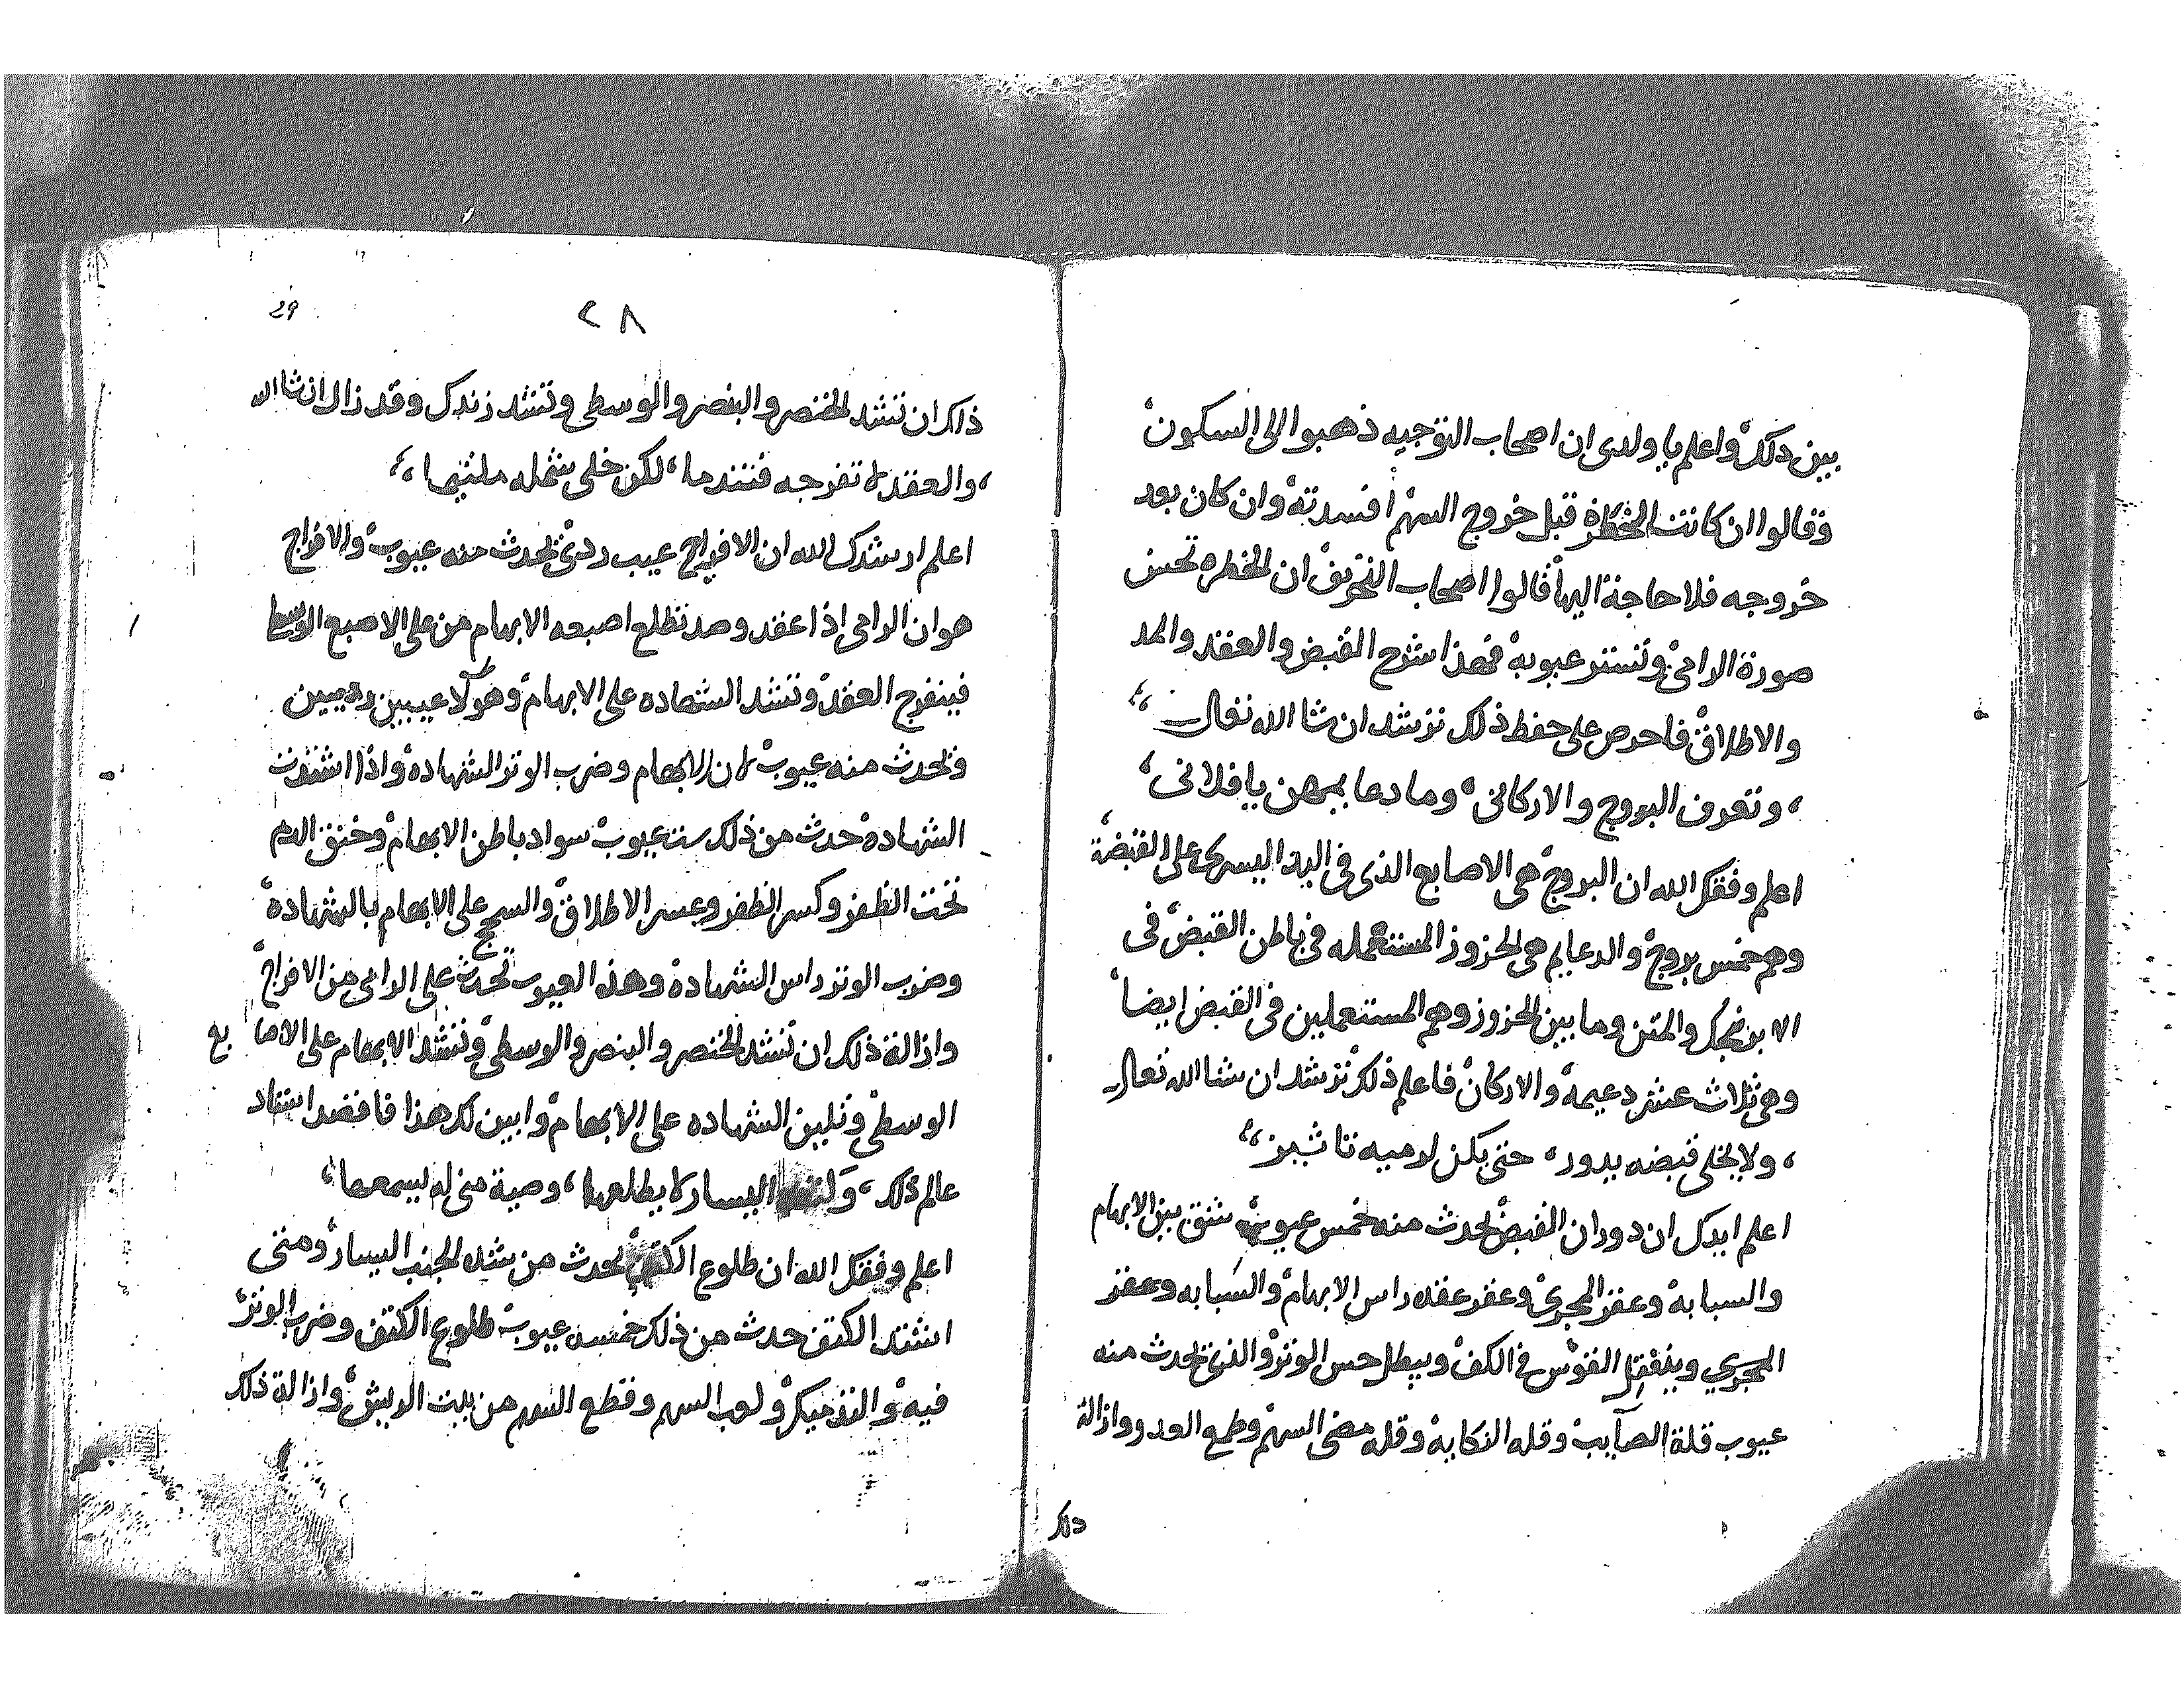 بين ذلك واعلم يا ولدى ان اصحاب التوجيه ذهبوا الى السكون
وقالوا ان كانت الخطره قبل خروج السهم افسدته وان كان بعد
خروجه فلا حاجة اليها قالوا اصحاب التحريف ان الخطره تحسن
صورة الرامى وتستر عيوبه فهذا شرح القبض والعقد والمد
والاطلاق فاحرص على حفظ ذلك ترشد ان شا الله تعالى
وتعرف البروج والاركانى وما دعا بمهن يا فلانى
اعلم وفقك الله ان البروج هى الاصابع الذى فى اليد اليسرى على القبضة
وهم خمس بروج والدعايم هى الحزوز المستعمله فى باطن القبض فى
الابرنجك والمتن وما بين الحزوز وهم المستعملين فى القبض ايضا
وهى ثلاث عشر دعيمه والاركان فاعلم ذلك ترشد ان شا الله تعالى
ولا يخلى قبضه يدور حتى يكن لرميه تاثير
اعلم ايدك ان دوران القبض يحدث منه خمس عيوب شتق بين الابهام
والسبابه وعقر المجرى وعقر عقده راس الابهام والسبابه وعقر
المجرى وينفقل القوس فى الكف ويبطل حس الوتر والذى يحدث منه
عيوب قلة الصايب وقله النكايه وقله مضى السهم وطمع العدر وازالة
ذلك
٢٨
29
ذلك ان تشد الخنصر والبنصر والوسطى وتشد زندك وقد زال ان شا الله
والعقد لا تفرجه فتندما لكن خلى شمله ملتيما
اعلم ارشدك الله ان الافراج عيب ردى يحدث منه عيوب والافراج
هو ان الرامى اذا عقد ومد تطلع اصبعه الابهام من على الاصبع الوسطى
فينفرج العقد وتشد الشهاده على الابهام وهولا عيبين رديين
وتحدث منه عيوب لان الابهام وضرب الوتر الشهاده واذا اشتدت
الشهاده حدث من ذلك ست عيوب سواد باطن الابهام وخنق الدم
تحت الظفر وكسر الظفر وعسر الاطلاق والسحج على الابهام بالشهاده
وضرب الوتر راس الشهاده وهذه العيوب تحدث على الرامى من الافراج
وازالة ذلك ان تشد الخنصر والبنصر والوسطى وتشد الابهام على الاصابع
الوسطى وتلين الشهاده على الابهام وابين لك هذا فاقصد استاد
عالم ذلك اليسار لا يطلعها وصية منى له يسمعها
اعلم وفقك الله ان طلوع الكتف يحدث من شده الجنب اليسار ومتى
اشتد الكتف حدث من ذلك خمسه عيوب طلوع الكتف وضرب الوتر
فيه ولعب السهم وقطع السهم من بيت الريش وازالة ذلك